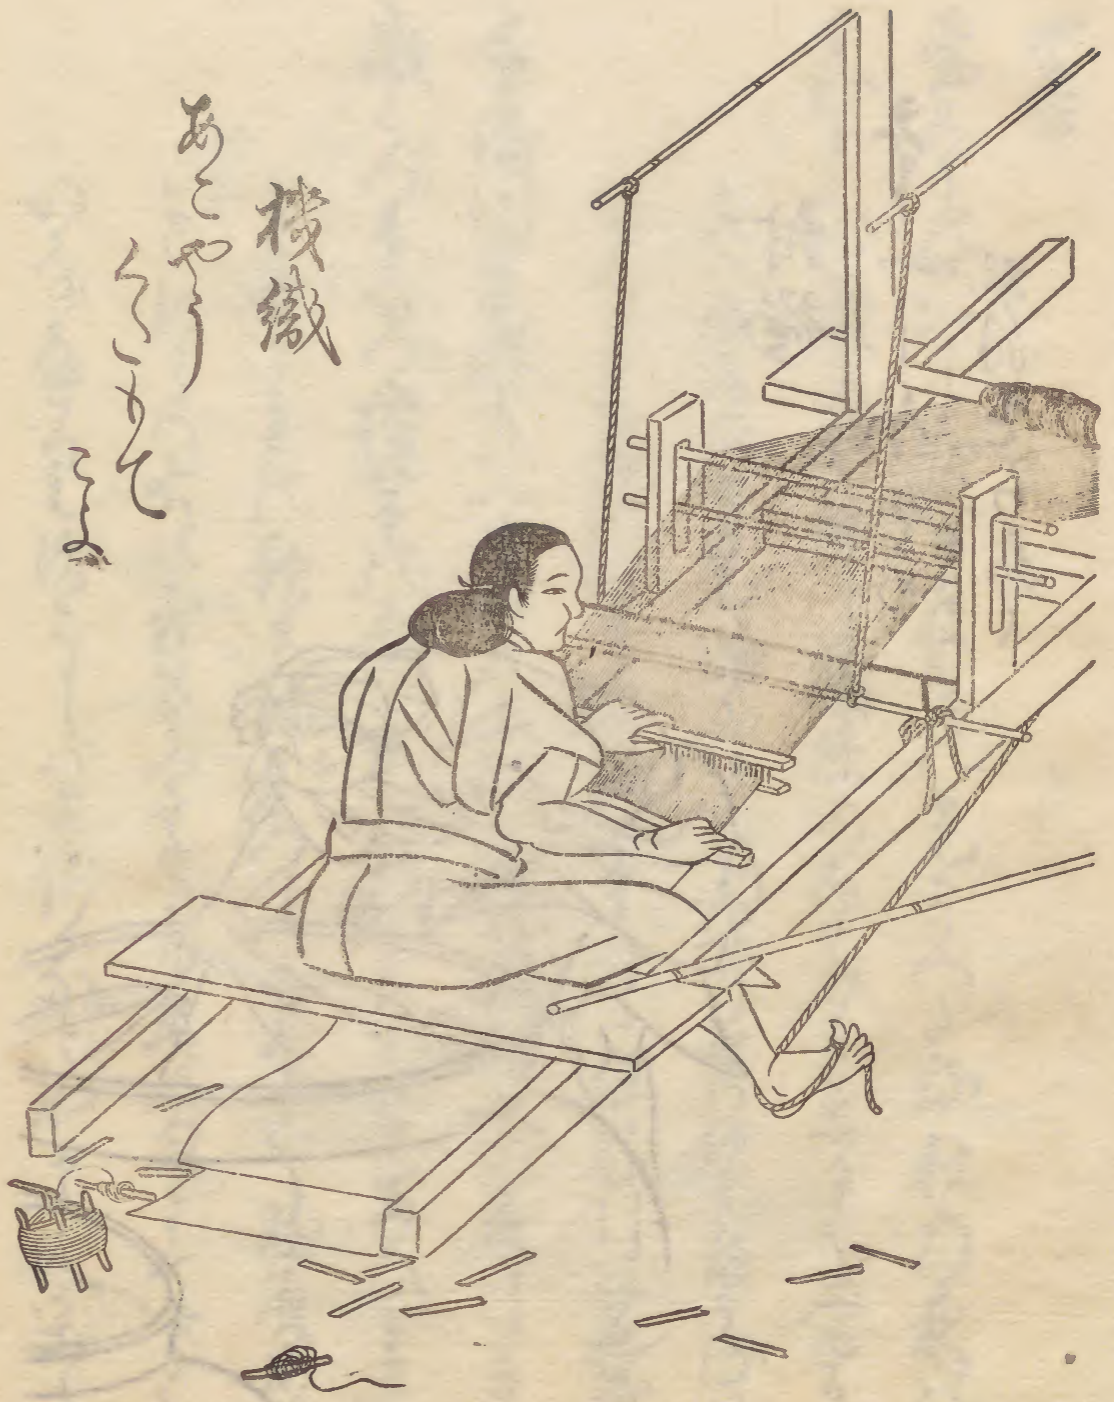 機織
あこやう
くたもて
こよ